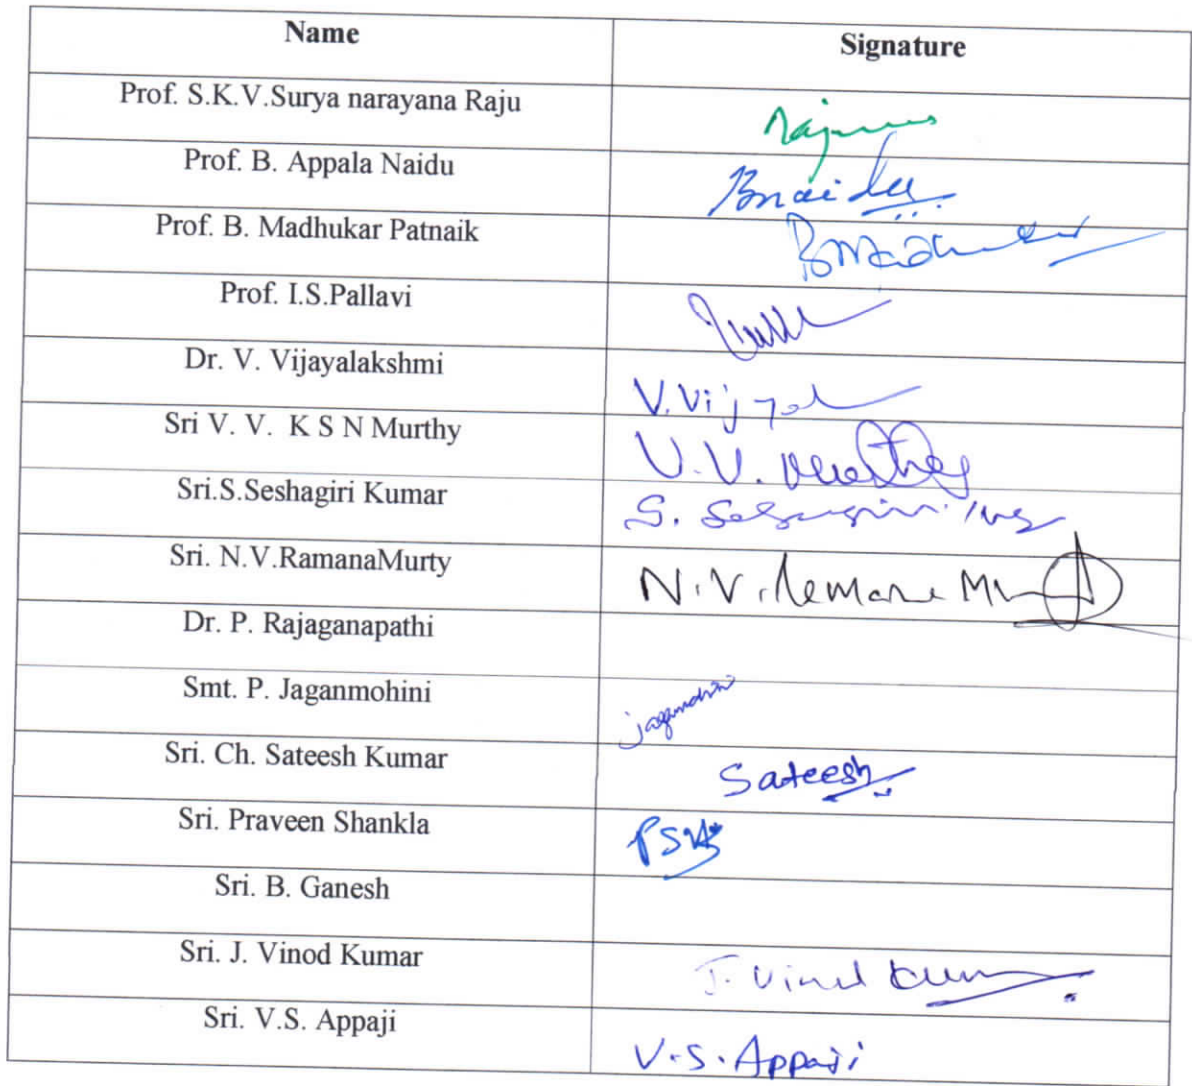 Name Signature
Prof. S.K.V.Surya narayana Raju
Prof. B. Appala Naidu Bnaidu
Prof. B. Madhukar Patnaik
Prof. I.S.Pallavi
Dr. V. Vijayalakshmi
Sri V. V. K S N Murthy V.V.
Sri.S.Seshagiri Kumar S.
Sri. N.V.RamanaMurty N.V.
Dr. P. Rajaganapathi
Smt. P. Jaganmohini
Sri. Ch. Sateesh Kumar Sateesh
Sri. Praveen Shankla
Sri. B. Ganesh
Sri. J. Vinod Kumar J.
Sri. V.S. Appaji V.S. Appaji